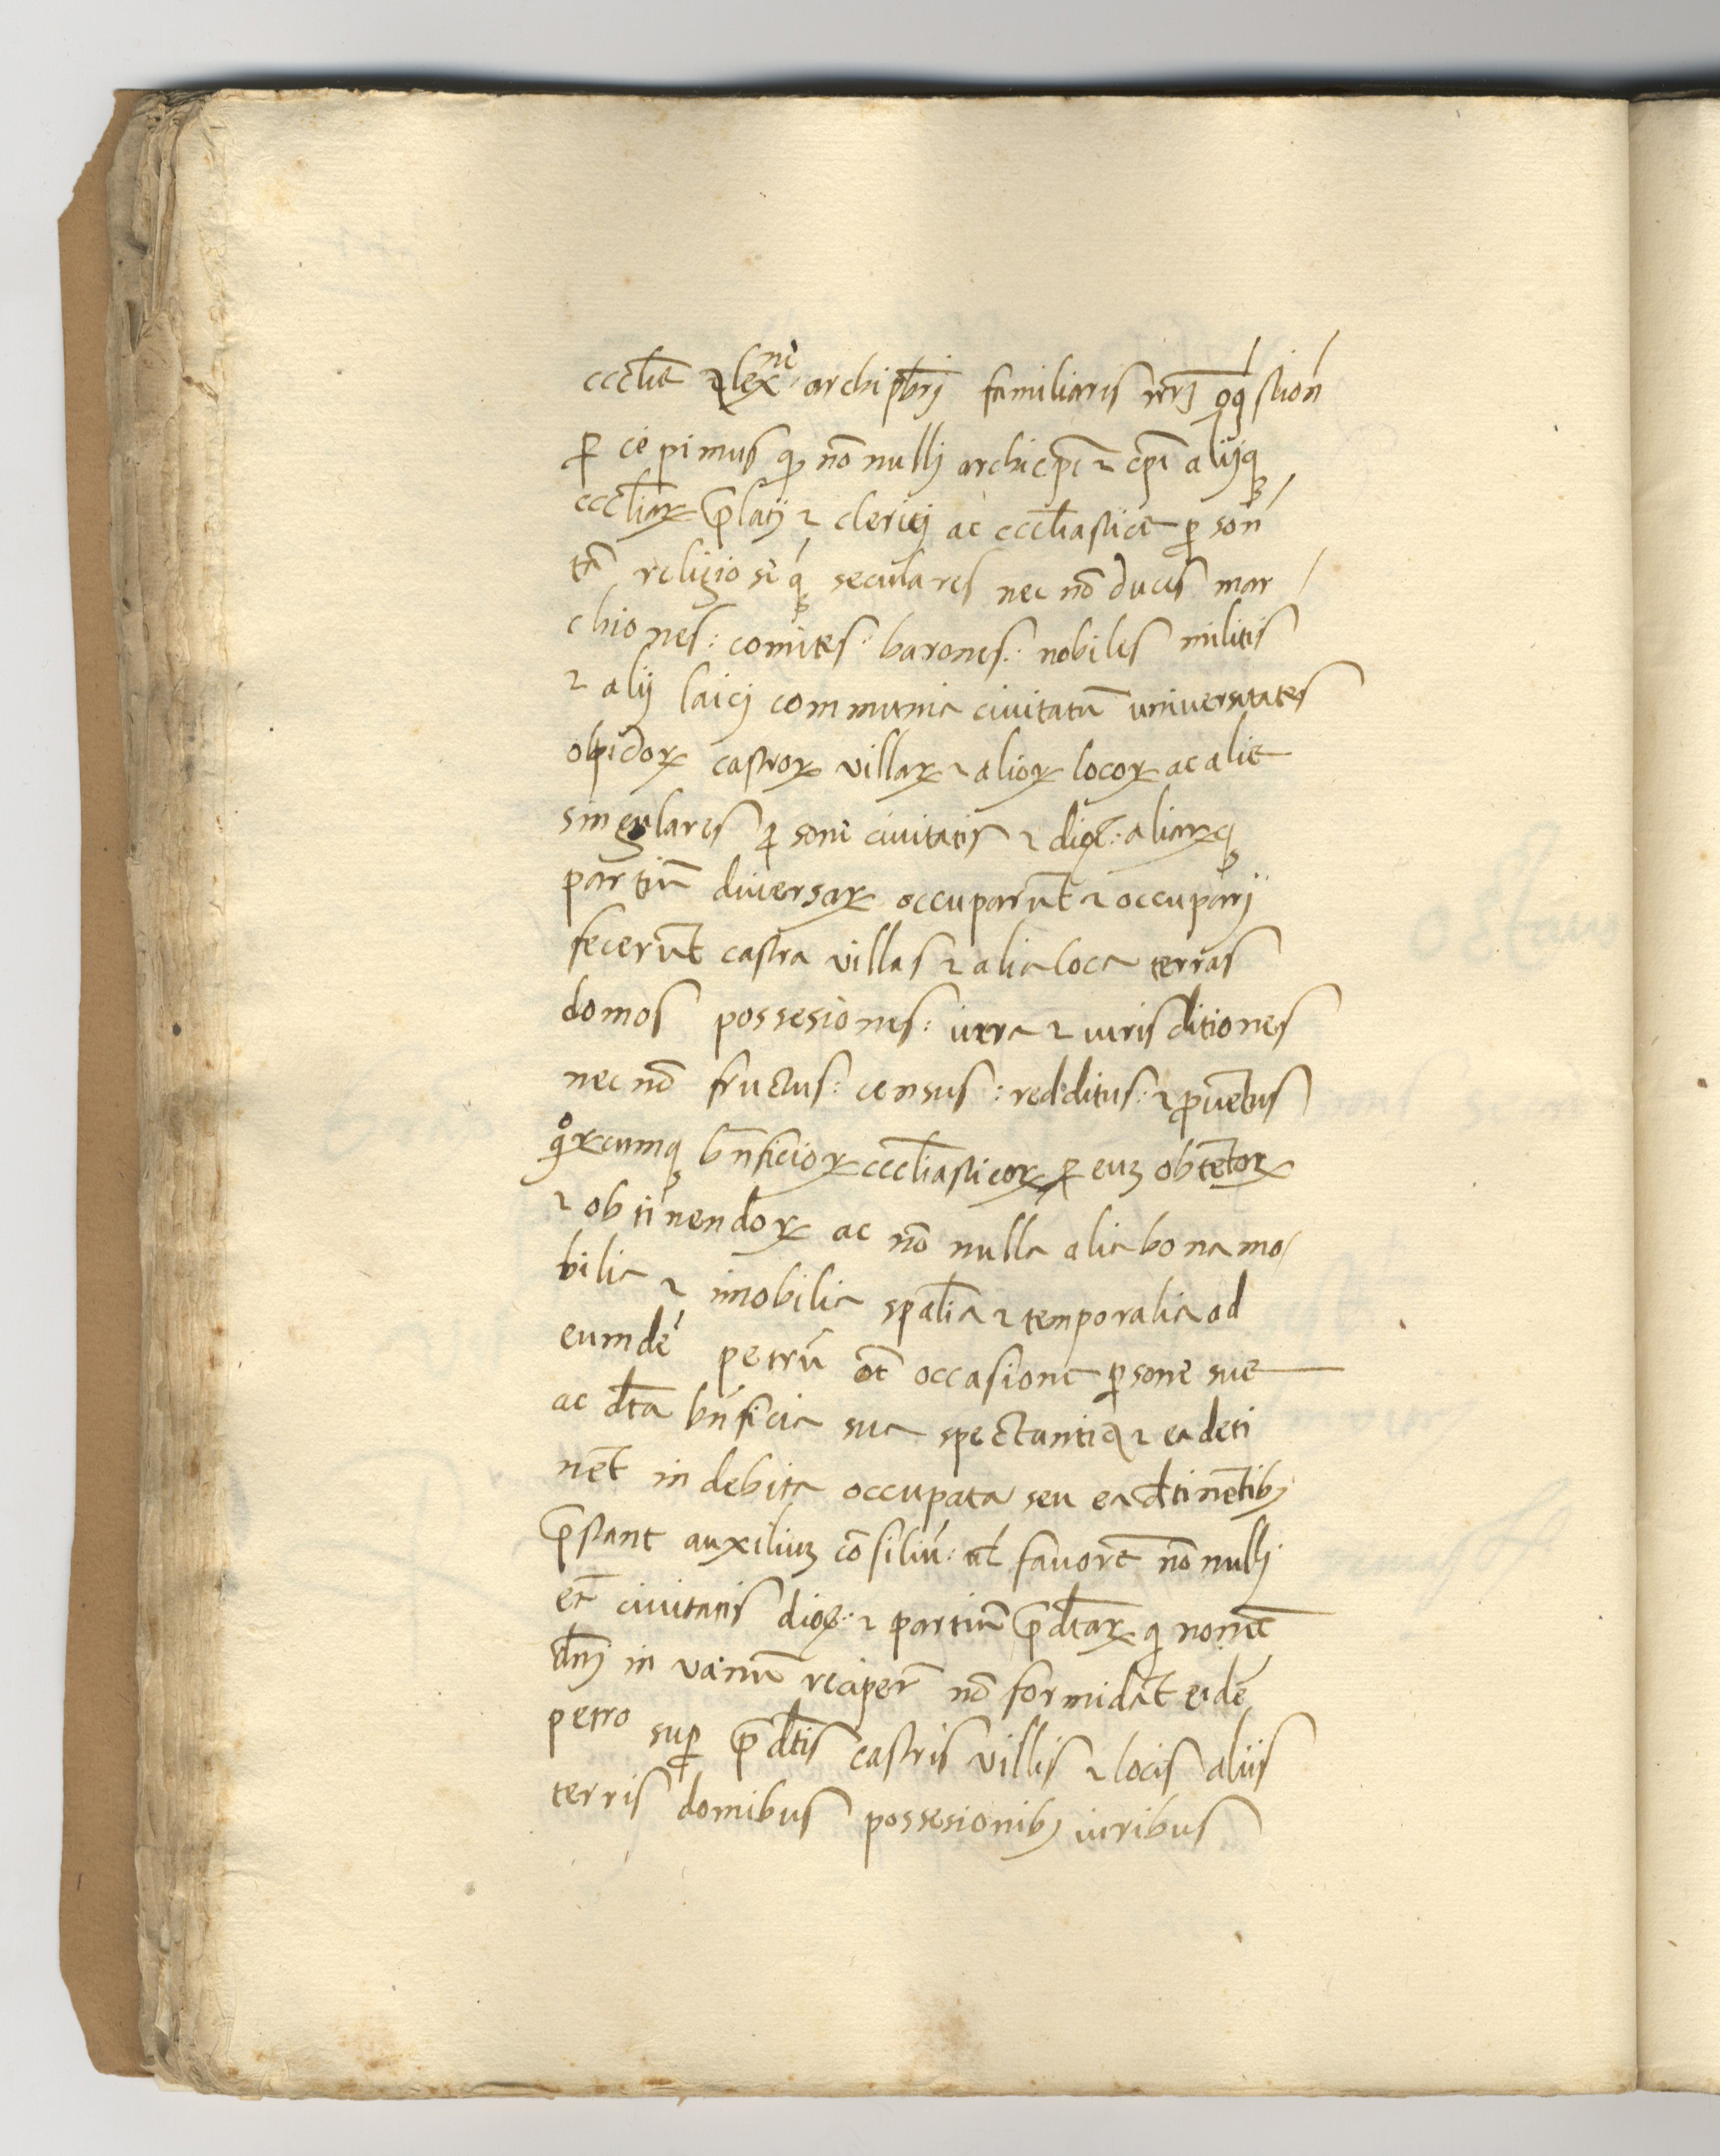 ecclie archipbri familiaris nrj stion
p cepimus q nō nullj archiepi & epi alijq
eccliar플 p̄latj & clericj ac ecclastice p son
tā religiosi q secvlares nec nō duces mar
chiones: comites: barones: nobiles milites
& alij laicj communia ciuitatū uniuersitates
opidoꝝ castroꝝ villaꝝ & alioꝝ locoꝝ ac alie
singulares p sone ciuitatis & dioc: aliaꝝq
partiū diuersaꝝ occuparūt & occuparj
fecerūt castra villas & alia loca terras
domos possesiones: iura & iurisditiones
nec nō fructus: census: redditus: & p̄uētus
qoꝝcumq bn̄ficioꝝ eccliasticoꝝ p eum obtētoꝝ
& obtinendoꝝ ac nō nulla alia bona mo
bilia & īmobilia sp̄alia & temporalia ad
eumdē petrū ōc occasione psone sue
ac dc̄ta bn̄ficia sua spectantia & ea deti
nēt in debita occupata seu ea dtinētibꝫ
p̄stant auxilium cōsiliū: ul favorē nō nullj
et̄ ciuitatis dioc: & partiū p̄dc̄taꝝ q nomē
dn̄j in vanū reciper nō formidāt eidē
petro sup p̄dc̄tis castris villis & locis aliis
terris domibus possesionibꝫ iuribus